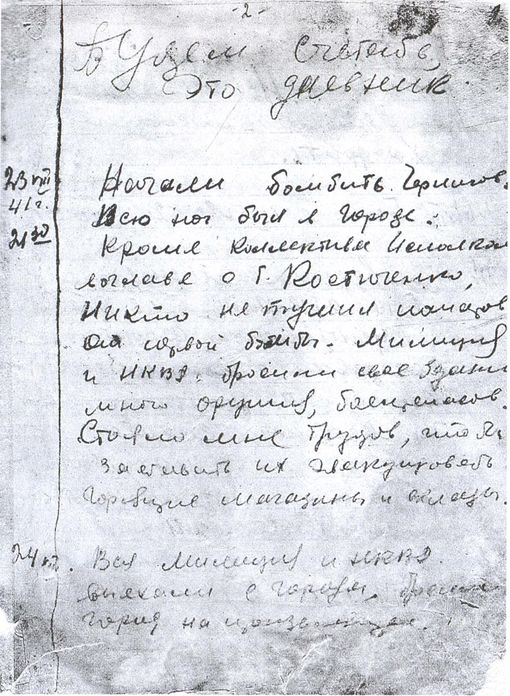 -2-
Будем считать,
это дневник
23 VIII Начали бомбить Чернигов.
41 г. Всю ноч был в городе.
21 30 Кроме коллектива Исполкома
во главе с т. Костюченко,
никто не тушил пожаров
от первой бомбы. Милиция
и НКВД. бросили свое здание
много оружия, боеприпасов.
Стояло мне трудов, чтобы
заставить их эвакуировать
горевшие магазины и склады.
24 VIII. Вся милиция и НКВД.
выехали с города, бросив
город на произвол